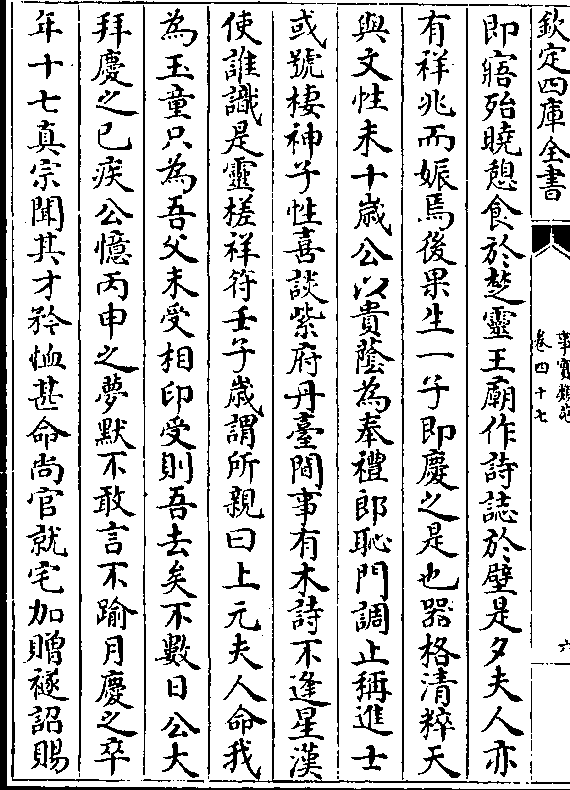 欽定四庫全書
事實類苑
卷四十七
六
即寤殆曉憩食於楚靈王廟作詩誌於壁是夕夫人亦
有祥兆而娠焉後果生一子即慶之是也器格清粹天
與文性未十歳公以貴䕃為奉禮郎恥門調止稱進士
或號棲神子性喜談紫府丹臺間事有木詩不逢星漢
使誰識是靈槎祥符壬子歳謂所親曰上元夫人命我
為玉童只為吾父未受相印受則吾去矣不數日公大
拜慶之已疾公憶丙申之夢黙不敢言不踰月慶之卒
年十七真宗聞其才矜恤甚命尚官就宅加贈襚詔賜